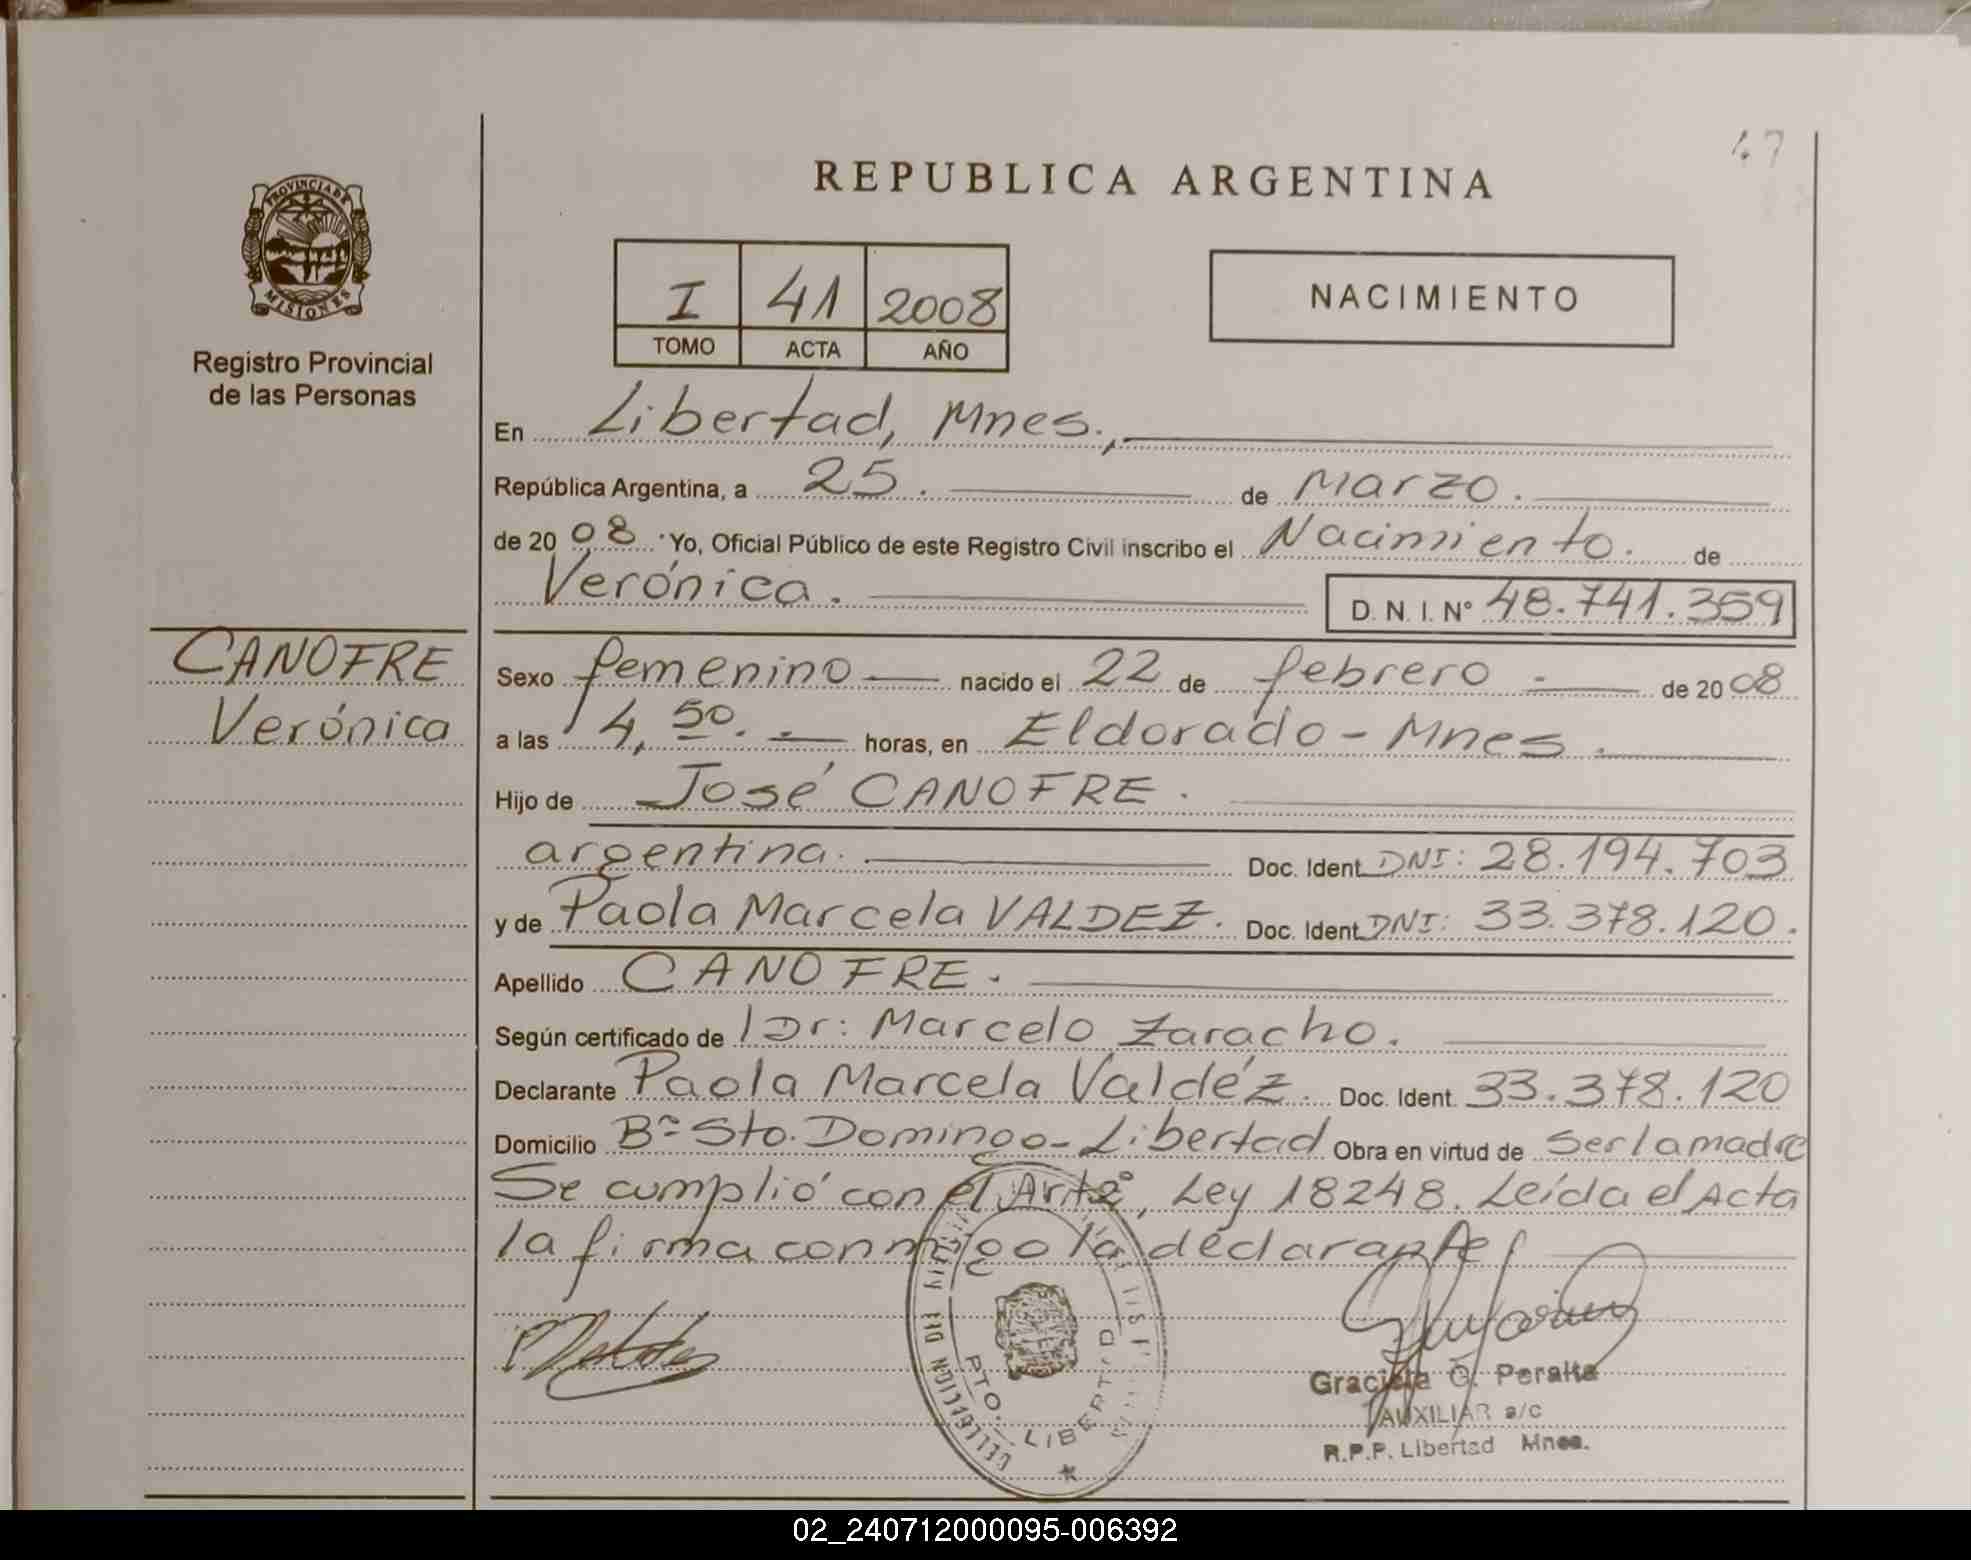 47
REPUBLICA ARGENTINA
PROVINCIA DE
MISIONES
Registro Provincial
de las Personas
I 41 2008
TOMO ACTA AÑO
NACIMIENTO
En Libertad, Mnes.,
República Argentina, a 25. de Marzo.
de 20 08. Yo, Oficial Público de este Registro Civil inscribo el Nacimiento. de
Verónica. D. N. I. N° 48.741.359
CANOFRE
Verónica
Sexo femenino nacido el 22 de febrero de 20 08
a las 4,50. horas, en Eldorado - Mnes.
Hijo de José CANOFRE.
argentina. Doc. Ident. DNI: 28.194.703
y de Paola Marcela VALDEZ. Doc. Ident. DNI: 33.378.120.
Apellido CANOFRE.
Según certificado de Dr: Marcelo Zaracho.
Declarante Paola Marcela Valdéz. Doc. Ident. 33.378.120
Domicilio Bº Sto. Domingo - Libertad Obra en virtud de ser la madre
Se cumplió con el Art 2º, Ley 18248. Leída el Acta
la firma conmigo la declarante
PTO. LIBERTAD
Graciela G. Peralta
AUXILIAR a/c
R.P.P. Libertad Mnes.
02_240712000095-006392